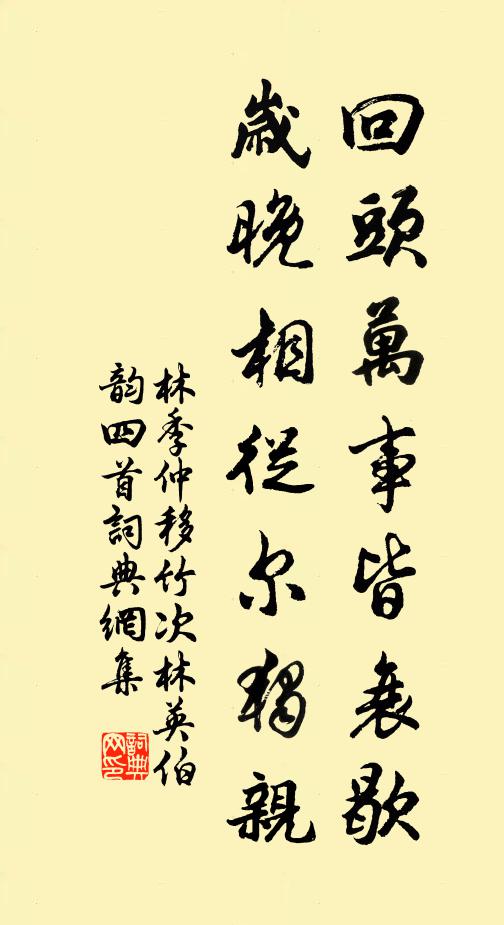 回頭萬事皆衰歇
歲晚相從尔獨親
林季仲移竹次林英伯
韵四首詞典網集
詞典網印